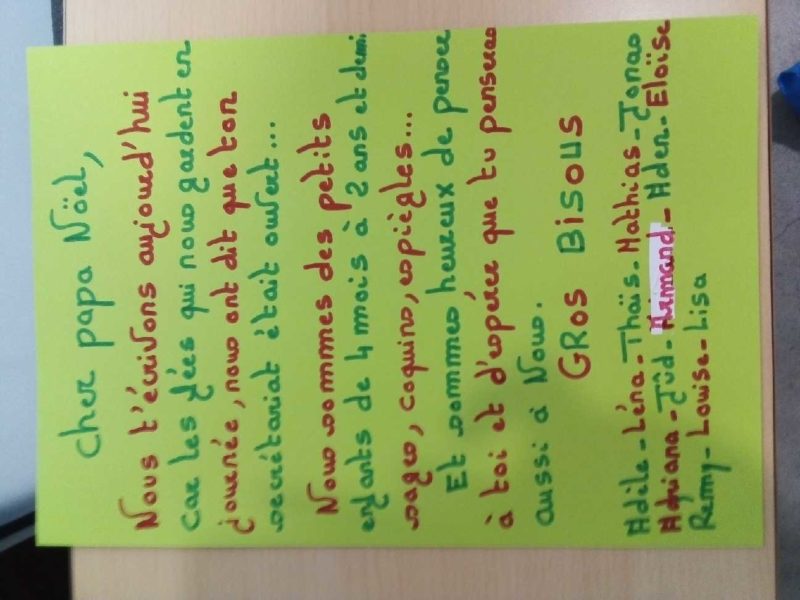 Cher papa Nöel,
Nous t'écrivons aujourd'hui
Car les fées qui nous gardent en
journée, nous ont dit que ton
secrétariat était ouvert...
Nous sommes des petits
enfants de 4 mois à 2 ans et demi
sages, coquins, espiègles...
Et sommes heureux de penser
à toi et d'espérer que tu penseras
aussi à Nous.
GROS BISOUS
Adèle - Léna - Thaïs - Mathias - Jonas
Adriana - Jüd - Armand - Aden - Eloïse
Remy - Louise - Lisa